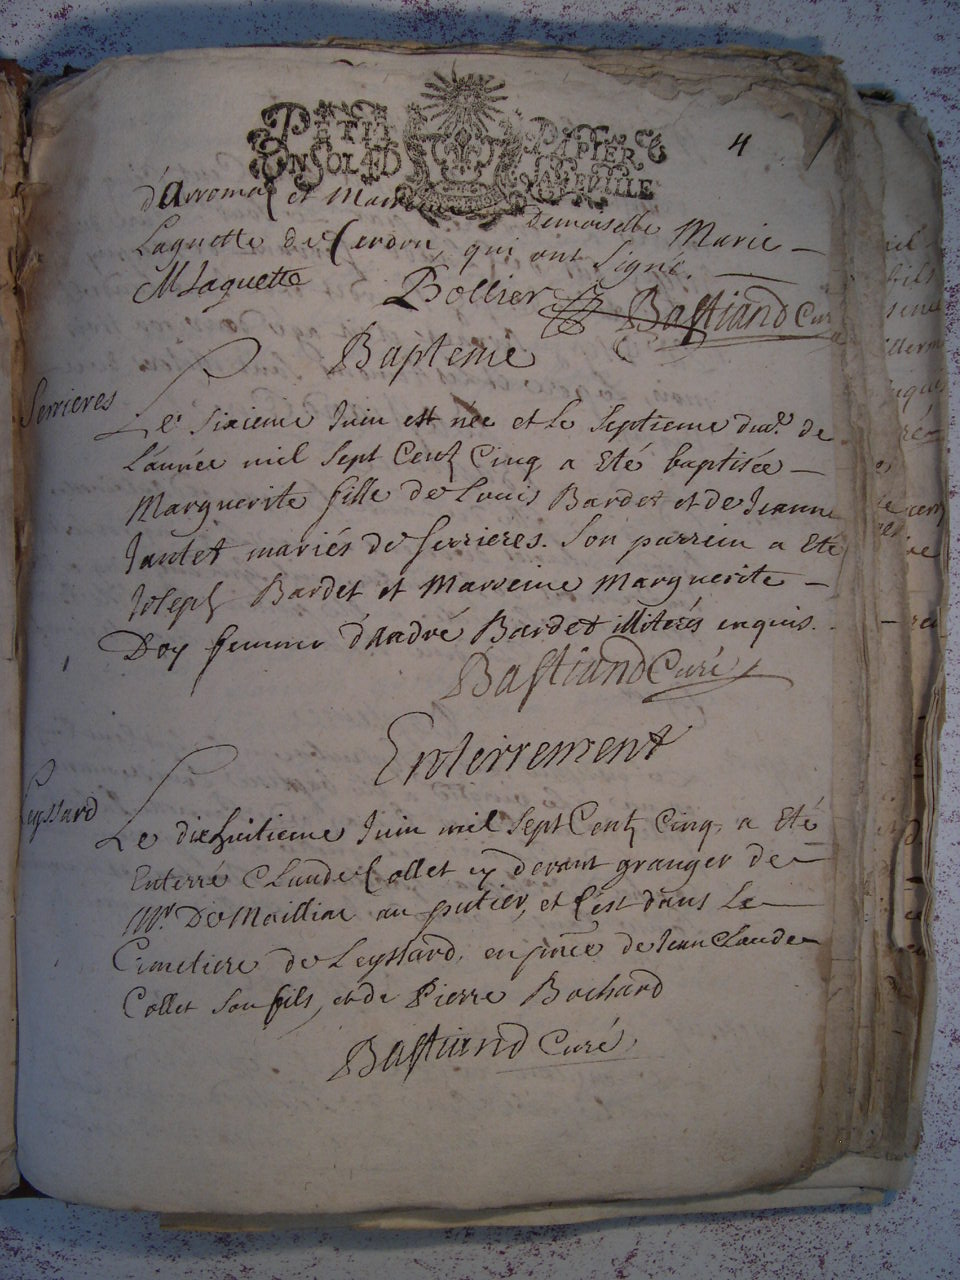 PETIT PAPIER
UN SOL 4D LA FEUILLE
4
d'arroma et Marreine Demoiselle Marie
Laguette de Cerdon, qui ont signé.
M Laguette Bollier Bastiand Curé
Bapteme
Serrieres
Le Sixieme Juin est née et le Septieme dud. de
L'année mil Sept Cent Cinq a Eté baptisée
Marguerite fille de Louis Bardet et de Jeanne
Jantet mariés de Serrieres. Son parrein a Eté
Joseph Bardet et Marreine Marguerite
Doy femme d'André Bardet illiterés enquis.
Bastiand Curé
Enterrement
Leyssard
Le dixhuitieme Juin mil Sept Cent Cinq, a Eté
Enterré Claude Collet cy devant granger de
Mr. De Moillia au putier, et C'est dans Le
Cimetiere de Leyssard, en pnce de Jean Claude
Collet Son fils, et de Pierre Bochard
Bastiand Curé